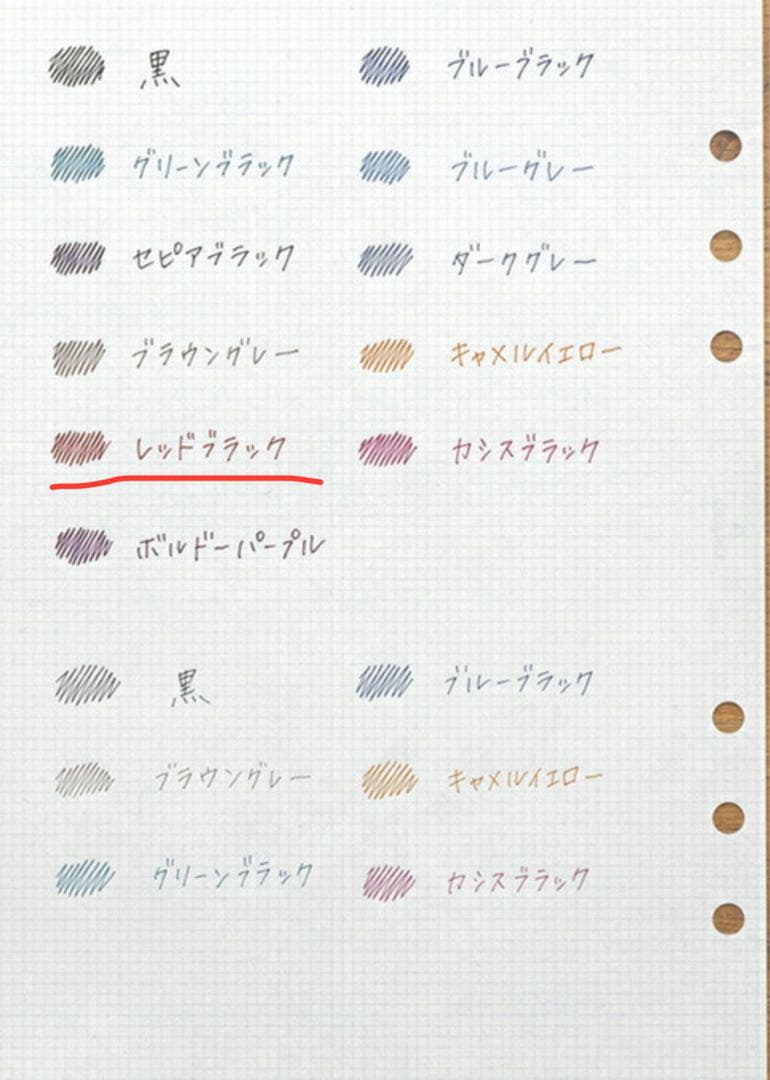 黒 ブルーブラック
グリーンブラック ブルーグレー
セピアブラック ダークグレー
ブラウングレー キャメルイエロー
レッドブラック カシスブラック
ボルドーパープル
黒 ブルーブラック
ブラウングレー キャメルイエロー
グリーンブラック カシスブラック